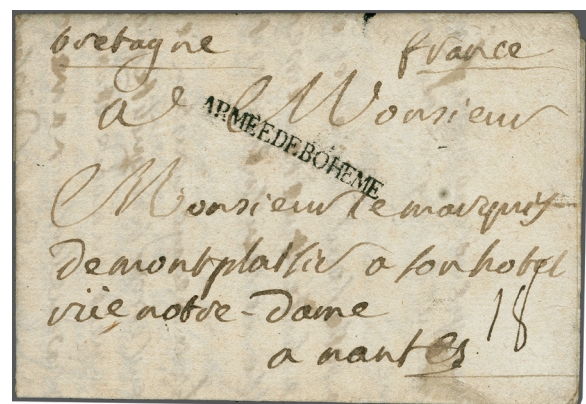 bretagne france
a Monsieur
ARMÉE DE BOHEME
Monsieur le marquis
de montplaisir a son hotel
rüe notre-dame
a nantes 18